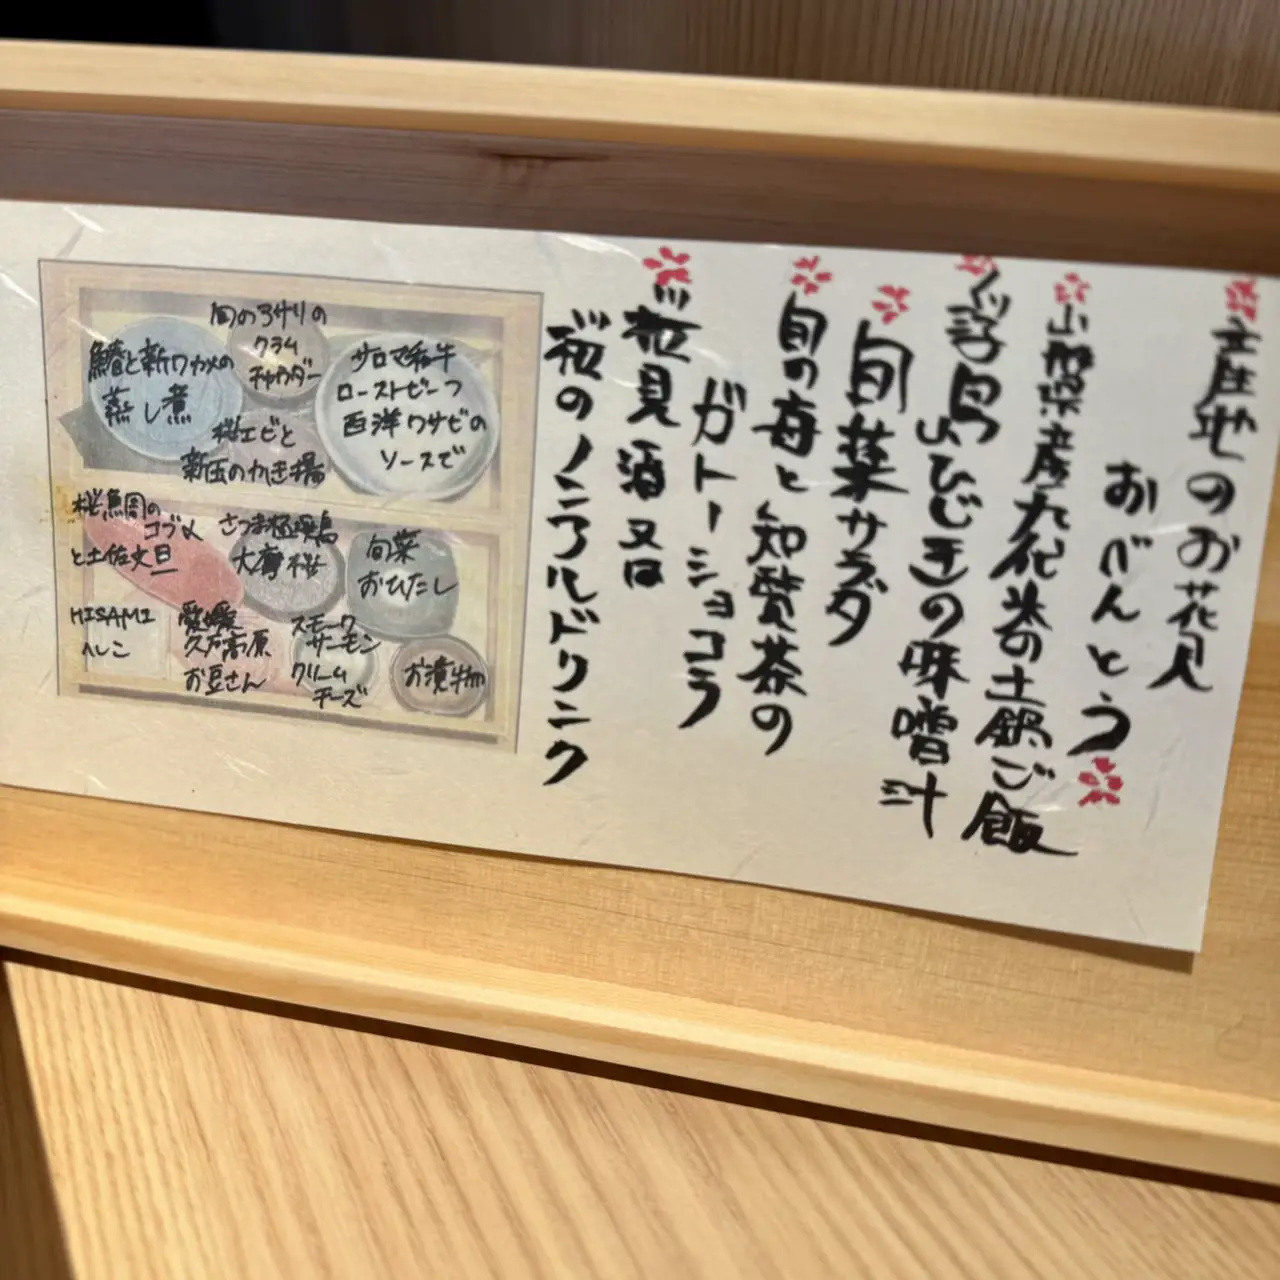 産地のお花見
おべんとう
山形県産元代米の土鍋ご飯
浮島ひじきの味噌汁
旬菜サラダ
旬の苺と知覧茶の
ガトーショコラ
桜見酒又は
桜のノンアルドリンク
旬の
クラム
チャウダー
鰆と新ワカメの
蒸し煮
サロマ和牛
ローストビーフ
西洋ワサビの
ソースで
桜エビと
新玉のかき揚
桜鯛の
コブ〆
と土佐文旦
さつま極煌鳥
旬菜
おひたし
HISAMI
へしこ
愛媛
久万高原
お豆さん
スモーク
サーモン
クリーム
チーズ
お漬物